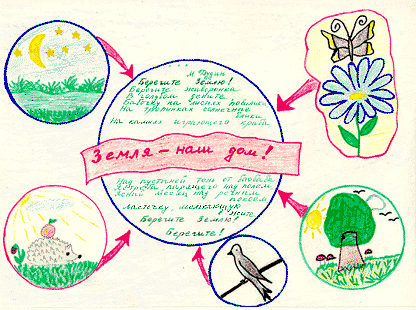 М. Дудин
Берегите Землю!
Берегите жаворонка
В голубом зените
Бабочку на листьях повилики
На тропинках солнечные
блики
На камнях играющего краба
Земля – наш дом!
Над пустыней тень от баобаба
Ястреба парящего над полем
Ясный месяц над речным
покоем
Ласточку, мелькающую
в жите
Берегите Землю!
Берегите!